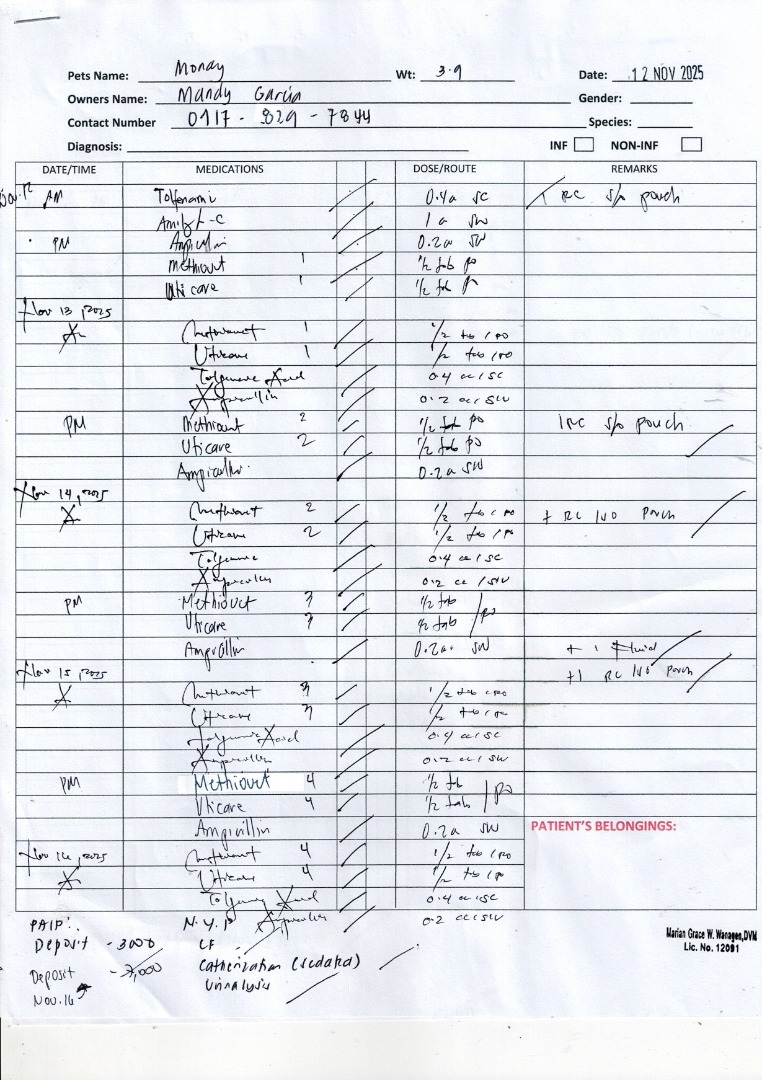 Pets Name: Monday Wt: 3.9 Date: 12 NOV 2025
Owners Name: Mandy Garcia Gender:
Contact Number 0917 - 829 - 7844 Species:
Diagnosis: INF NON-INF
DATE/TIME MEDICATIONS DOSE/ROUTE REMARKS
Nov. 12 AM Tolfenami 0.4cc SC 1 RC s/o pouch
1cc
PM Ampicillin 0.2cc
Methiovet 1 1/2 tab po
Uticare 1 1/2 tab
Nov 13, 2025
Methiovet 1 1/2 tab / po
Uticare 1 1/2 tab / po
Tolfenamic Acid 0.4 cc / SC
Ampicillin 0.2 cc /
PM Methiovet 2 1/2 tab po 1RC s/o pouch
Uticare 2 1/2 tab po
Ampicillin 0.2cc
Nov 14, 2025
Methiovet 2 1/2 tab / po + RC pouch
Uticare 2 1/2 tab / po
0.4 cc / SC
Ampicillin 0.2 cc /
PM Methiovet 3 1/2 tab / po
Uticare 3 1/2 tab
Ampicillin 0.2cc + 1 Fluid
Nov 15, 2025 +1 RC pouch
Methiovet 3 1/2 tab / po
Uticare 3 1/2 tab / po
Acid 0.4 cc / SC
Ampicillin 0.2 cc /
PM Methiovet 4 1/2 tab / po
Uticare 4 1/2 tab
Ampicillin 0.2cc PATIENT'S BELONGINGS:
Nov 16, 2025 Methiovet 4 1/2 tab / po
Uticare 4 1/2 tab / po
Acid 0.4 cc / SC
PAID: N.Y.P Ampicillin 0.2 cc /
Deposit - 3000 CF
Deposit - 7,000 Catherization (sedated)
Nov. 16 Urinalysis
Marian Grace W. Wanagen, DVM
Lic. No. 12091